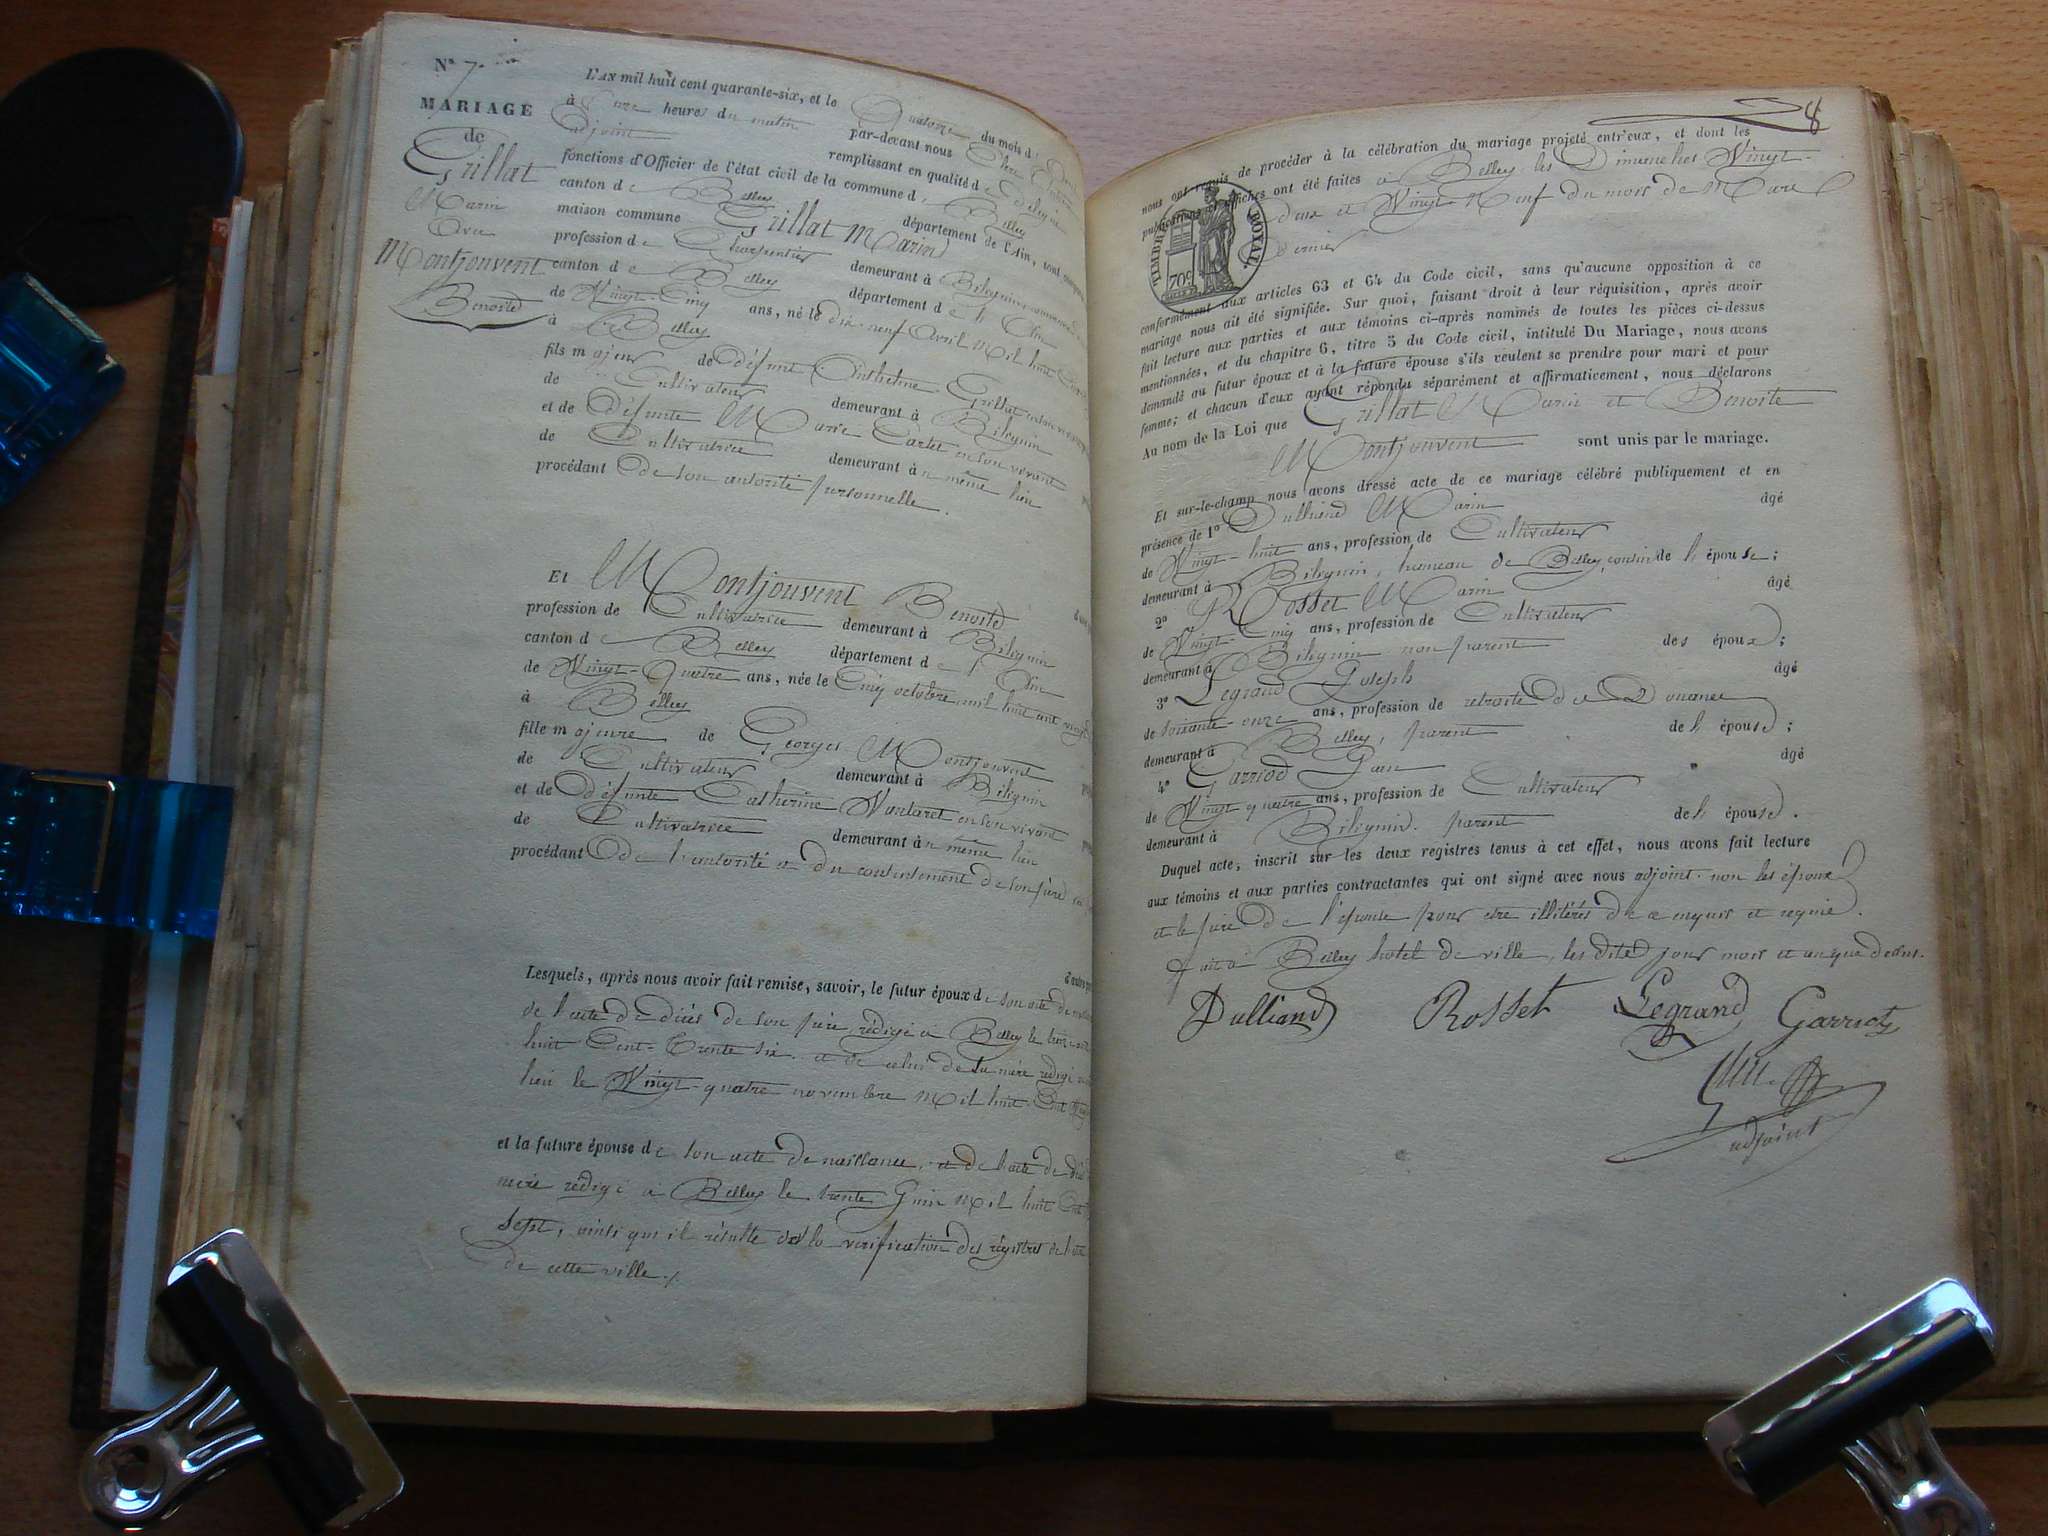 N° 7
MARIAGE
de
Grillat
Marin
Avec
Montjouvent
Benoite
L'AN mil huit cent quarante-six, et le Quatorze du mois d'
à onze heures du matin par-devant nous
adjoint remplissant en qualité de
fonctions d'Officier de l'état civil de la commune d
canton de Belley département de l'Ain, sont
maison commune Grillat Marin
profession de Charpentier demeurant à Bilignin
canton de Belley département de l'Ain
de Vingt-Cinq ans, né le dix-neuf Avril Mil huit Cent
à Belley
fils majeur de défunt Anthelme Grillat en son vivant
de Cultivateur demeurant à Bilignin
et de défunte Marie Carlet en son vivant
de Cultivatrice demeurant à même lieu
procédant de son autorité personnelle.
Et Montjouvent Benoite
profession de Cultivatrice demeurant à Bilignin
canton de Belley département de l'Ain
de Vingt-Quatre ans, née le Cinq octobre mil huit cent vingt
à Belley
fille majeure de Georges Montjouvent
de Cultivateur demeurant à Bilignin
et de défunte Catherine Vontaret en son vivant
de Cultivatrice demeurant à même lieu
procédant de l'autorité et du consentement de son père
Lesquels, après nous avoir fait remise, savoir, le futur époux de son acte de
de l'acte de décès de son père rédigé à Belley le
huit Cent-Trente six et de celui de sa mère rédigé
lieu le Vingt-quatre novembre Mil huit-Cent
et la future épouse de son acte de naissance, et de l'acte de
mère rédigé à Belley le trente Juin Mil huit Cent
sept, ainsi qu'il résulte de la vérification des régistres de
de cette ville.
8
nous ont requis de procéder à la célébration du mariage projeté entr'eux, et dont les
publications et affiches ont été faites à Belley les Dimanches Vingt-
deux et Vingt-Neuf du mois de Mars
dernier
TIMBRE ROYAL
70c
conformément aux articles 63 et 64 du Code civil, sans qu'aucune opposition à ce
mariage nous ait été signifiée. Sur quoi, faisant droit à leur réquisition, après avoir
fait lecture aux parties et aux témoins ci-après nommés de toutes les pièces ci-dessus
mentionnées, et du chapitre 6, titre 5 du Code civil, intitulé Du Mariage, nous avons
demandé au futur époux et à la future épouse s'ils veulent se prendre pour mari et pour
femme; et chacun d'eux ayant répondu séparément et affirmaticement, nous déclarons
Au nom de la Loi que Grillat Marin et Benoite
Montjouvent sont unis par le mariage.
Et sur-le-champ nous avons dressé acte de ce mariage célébré publiquement et en
présence de 1° Dulliand Marin âgé
de Vingt-huit ans, profession de Cultivateur
demeurant à Bilignin, hameau de Belley, cousin de l'épouse;
2° Rosset Marin âgé
de Vingt-Cinq ans, profession de Cultivateur
demeurant à Bilignin non parent des époux;
3° Legrand Joseph âgé
de soixante-onze ans, profession de retraité de Douanes
demeurant à Belley, parent de l'épouse;
4° Garriod Jean âgé
de Vingt quatre ans, profession de Cultivateur
demeurant à Bilignin. parent de l'épouse.
Duquel acte, inscrit sur les deux registres tenus à cet effet, nous avons fait lecture
aux témoins et aux parties contractantes qui ont signé avec nous adjoint. non les époux
et le père de l'épouse pour etre illitérés de ce enquis et requis.
Fait à Belley hotel de ville, les dits jour mois et an que dessus.
Dulliand Rosset Legrand Garriod
adjoint